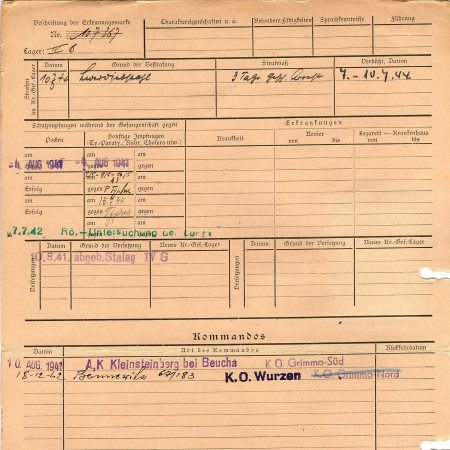 Beschriftung der Erkennungsmarke
Nr. 107367
Lager: IV B
Charaktereigenschaften u. a.
Besondere Fähigkeiten
Sprachkenntnisse
Führung
Strafen im Kr.-Gef.-Lager
Datum
Grund der Bestrafung
Strafmaß
Verbüßt, Datum
3 Tage
7. - 10.7.44
Schutzimpfungen während der Gefangenschaft gegen
Erkrankungen
Pocken
Sonstige Impfungen
(Ty.-Paraty., Ruhr, Cholera usw.)
Krankheit
Revier
von bis
Lazarett — Krankenhaus
von bis
am am am
4. AUG 1941 4. AUG 1941
am am am
Erfolg gegen gegen
am am
gegen gegen
am am
gegen gegen
27.7.42 Rö.-Untersuchung
Versetzungen
Datum
Grund der Versetzung
Neues Kr.-Gef.-Lager
Versetzungen
Datum
Grund der Versetzung
Neues Kr.-Gef.-Lager
10.8.41. abgeb. Stalag IV G
Kommandos
Datum
Art des Kommandos
Rückkehrdatum
10. AUG. 1941 A.K Kleinsteinberg bei Beucha K.O. Grimma-Süd
18-12-42 K.O. Wurzen K.O. Grimma-Nord